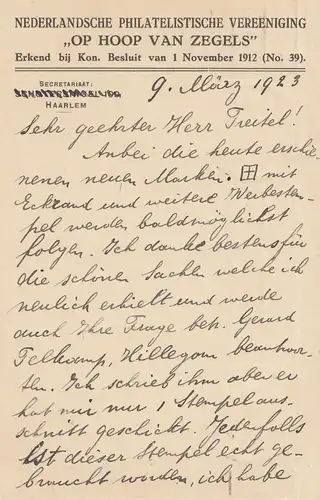 NEDERLANDSCHE PHILATELISTISCHE VEREENIGING
„OP HOOP VAN ZEGELS"
Erkend bij Kon. Besluit van 1 November 1912 (No. 39).
SECRETARIAAT:
HAARLEM
9. März 1923
Sehr geehrter Herr Treitel!
Anbei die heute erschie-
nenen neuen Marken. mit
Eckrand und weitere Werbestem-
pel werden baldmöglichst
folgen. Ich danke bestens für
die schönen Sachen welche ich
neulich erhielt und werde
auch Ihre Frage betr. Gerard
Telkamp, Hillegom beantwor-
ten. Ich schrieb ihm aber er
hat mir nur 1 Stempelaus-
schnitt geschickt. Jedenfalls
ist dieser Stempel echt ge-
braucht worden, ich habe